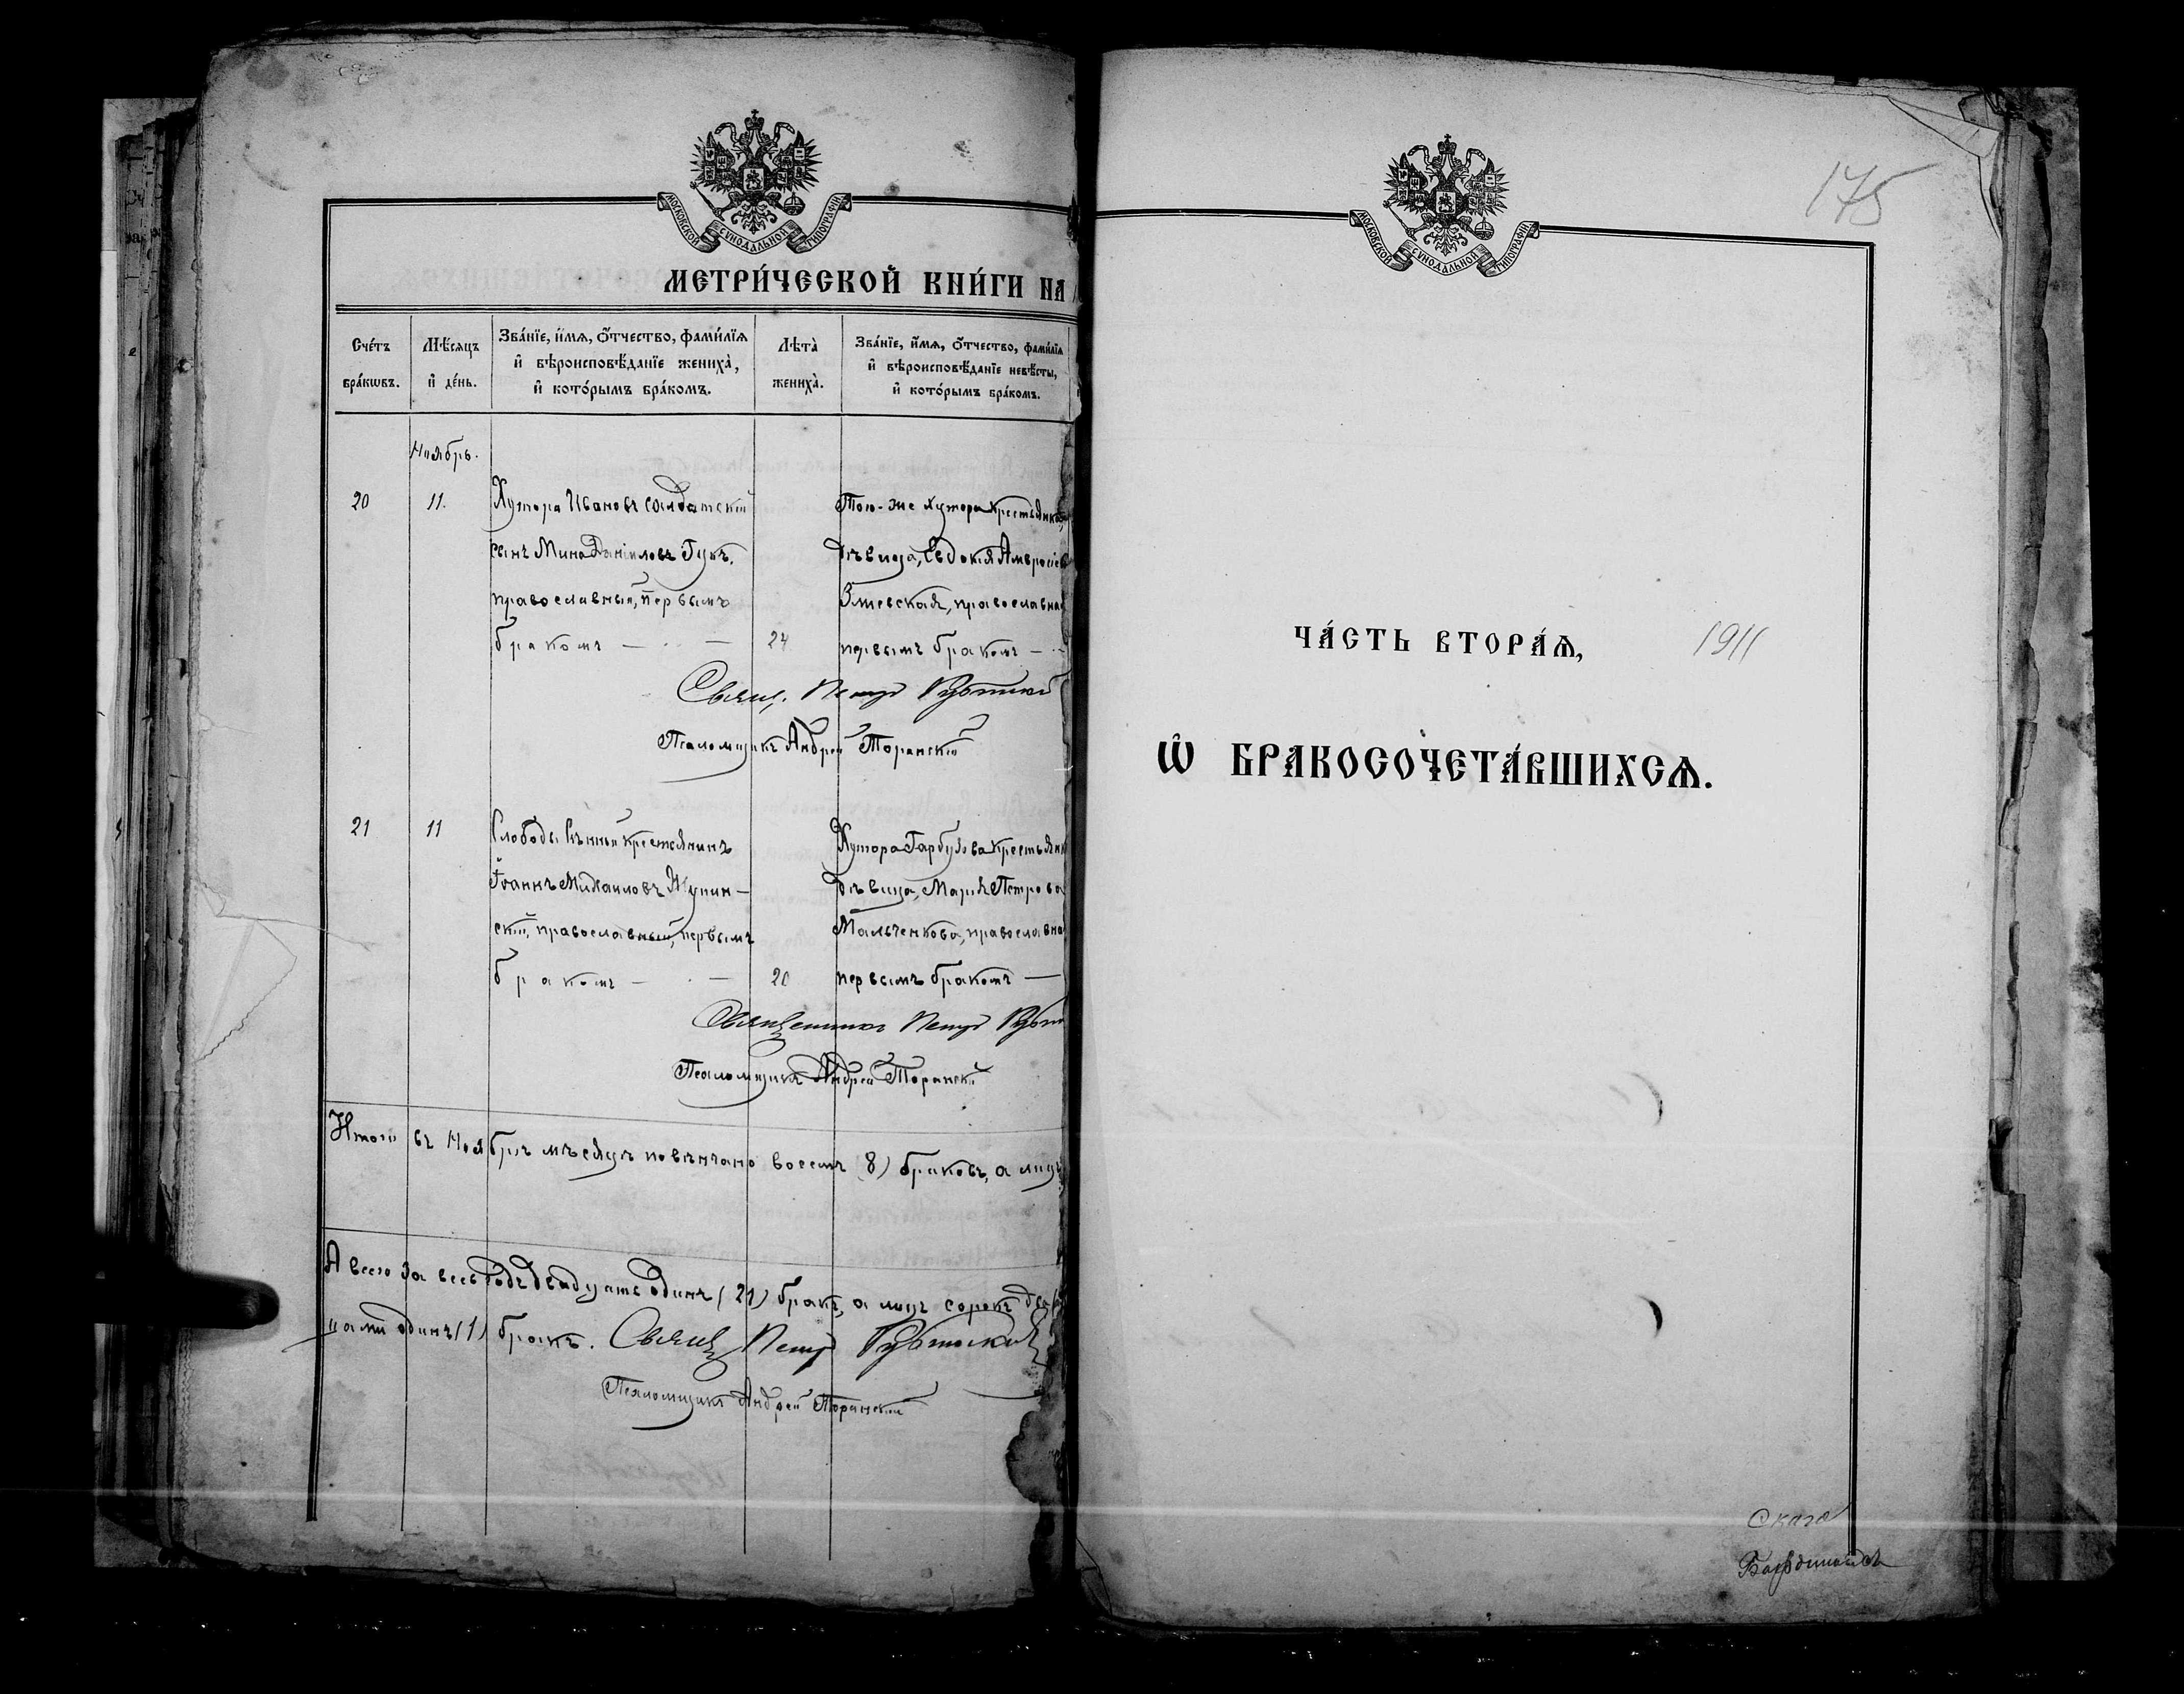 МОСКОВСКОЙ СѴНОДАЛЬНОЙ ТИПОГРАФІИ
МЕТРИ́ЧЕСКОЙ КНИ́ГИ НА
Сче́тъ бра́кѡвъ.
Мѣ́сяцъ и҆ де́нь.
Зва́нїе, и҆́мѧ, ѻ҆́тчество, фами́лїѧ
и҆ вѣроисповѣ́данїе жениха̀,
и҆ кото́рымъ бра́комъ.
Лѣта̀ жениха̀.
Зва́нїе, и҆́мѧ, ѻ҆́тчество, фами́лїѧ
и҆ вѣроисповѣ́данїе невѣ́сты,
и҆ кото́рымъ бра́комъ.
Ноябрь.
20 11. Хутора Ивановъ солдатскій
сынъ Мина Даніиловъ Гукъ,
православный, первымъ
бракомъ — 24
Того-же хутора крестьянка,
дѣвица, Евдокія Амвросіев
Змевская, православная
первымъ бракомъ —
Свящ. Петръ
Псаломщикъ Андрей Торанскій
21 11 Слободы Сѣнной крестьянинъ
Іоаннъ Михаиловъ Жупин-
скій, православный, первымъ
бракомъ — 20
Хутора Гарбузова крестьянк
дѣвица, Марія Петрова
Мальченкова, православна
первымъ бракомъ —
Священникъ Петръ
Псаломщикъ Андрей Торанскій
Итого въ Ноябрѣ мѣсяцѣ повѣнчано восемь (8) браковъ, а лицъ
А всего за весь годъ двадцать одинъ (21) бракъ, а лицъ сорокъ два
одинъ (1) бракъ. Свящ. Петръ
Псаломщикъ Андрей Торанскій
МОСКОВСКОЙ СѴНОДАЛЬНОЙ ТИПОГРАФІИ
175
ЧА́СТЬ ВТОРА́Ѧ, 1911
Ѡ҆ БРАКОСОЧЕТА́ВШИХСѦ.